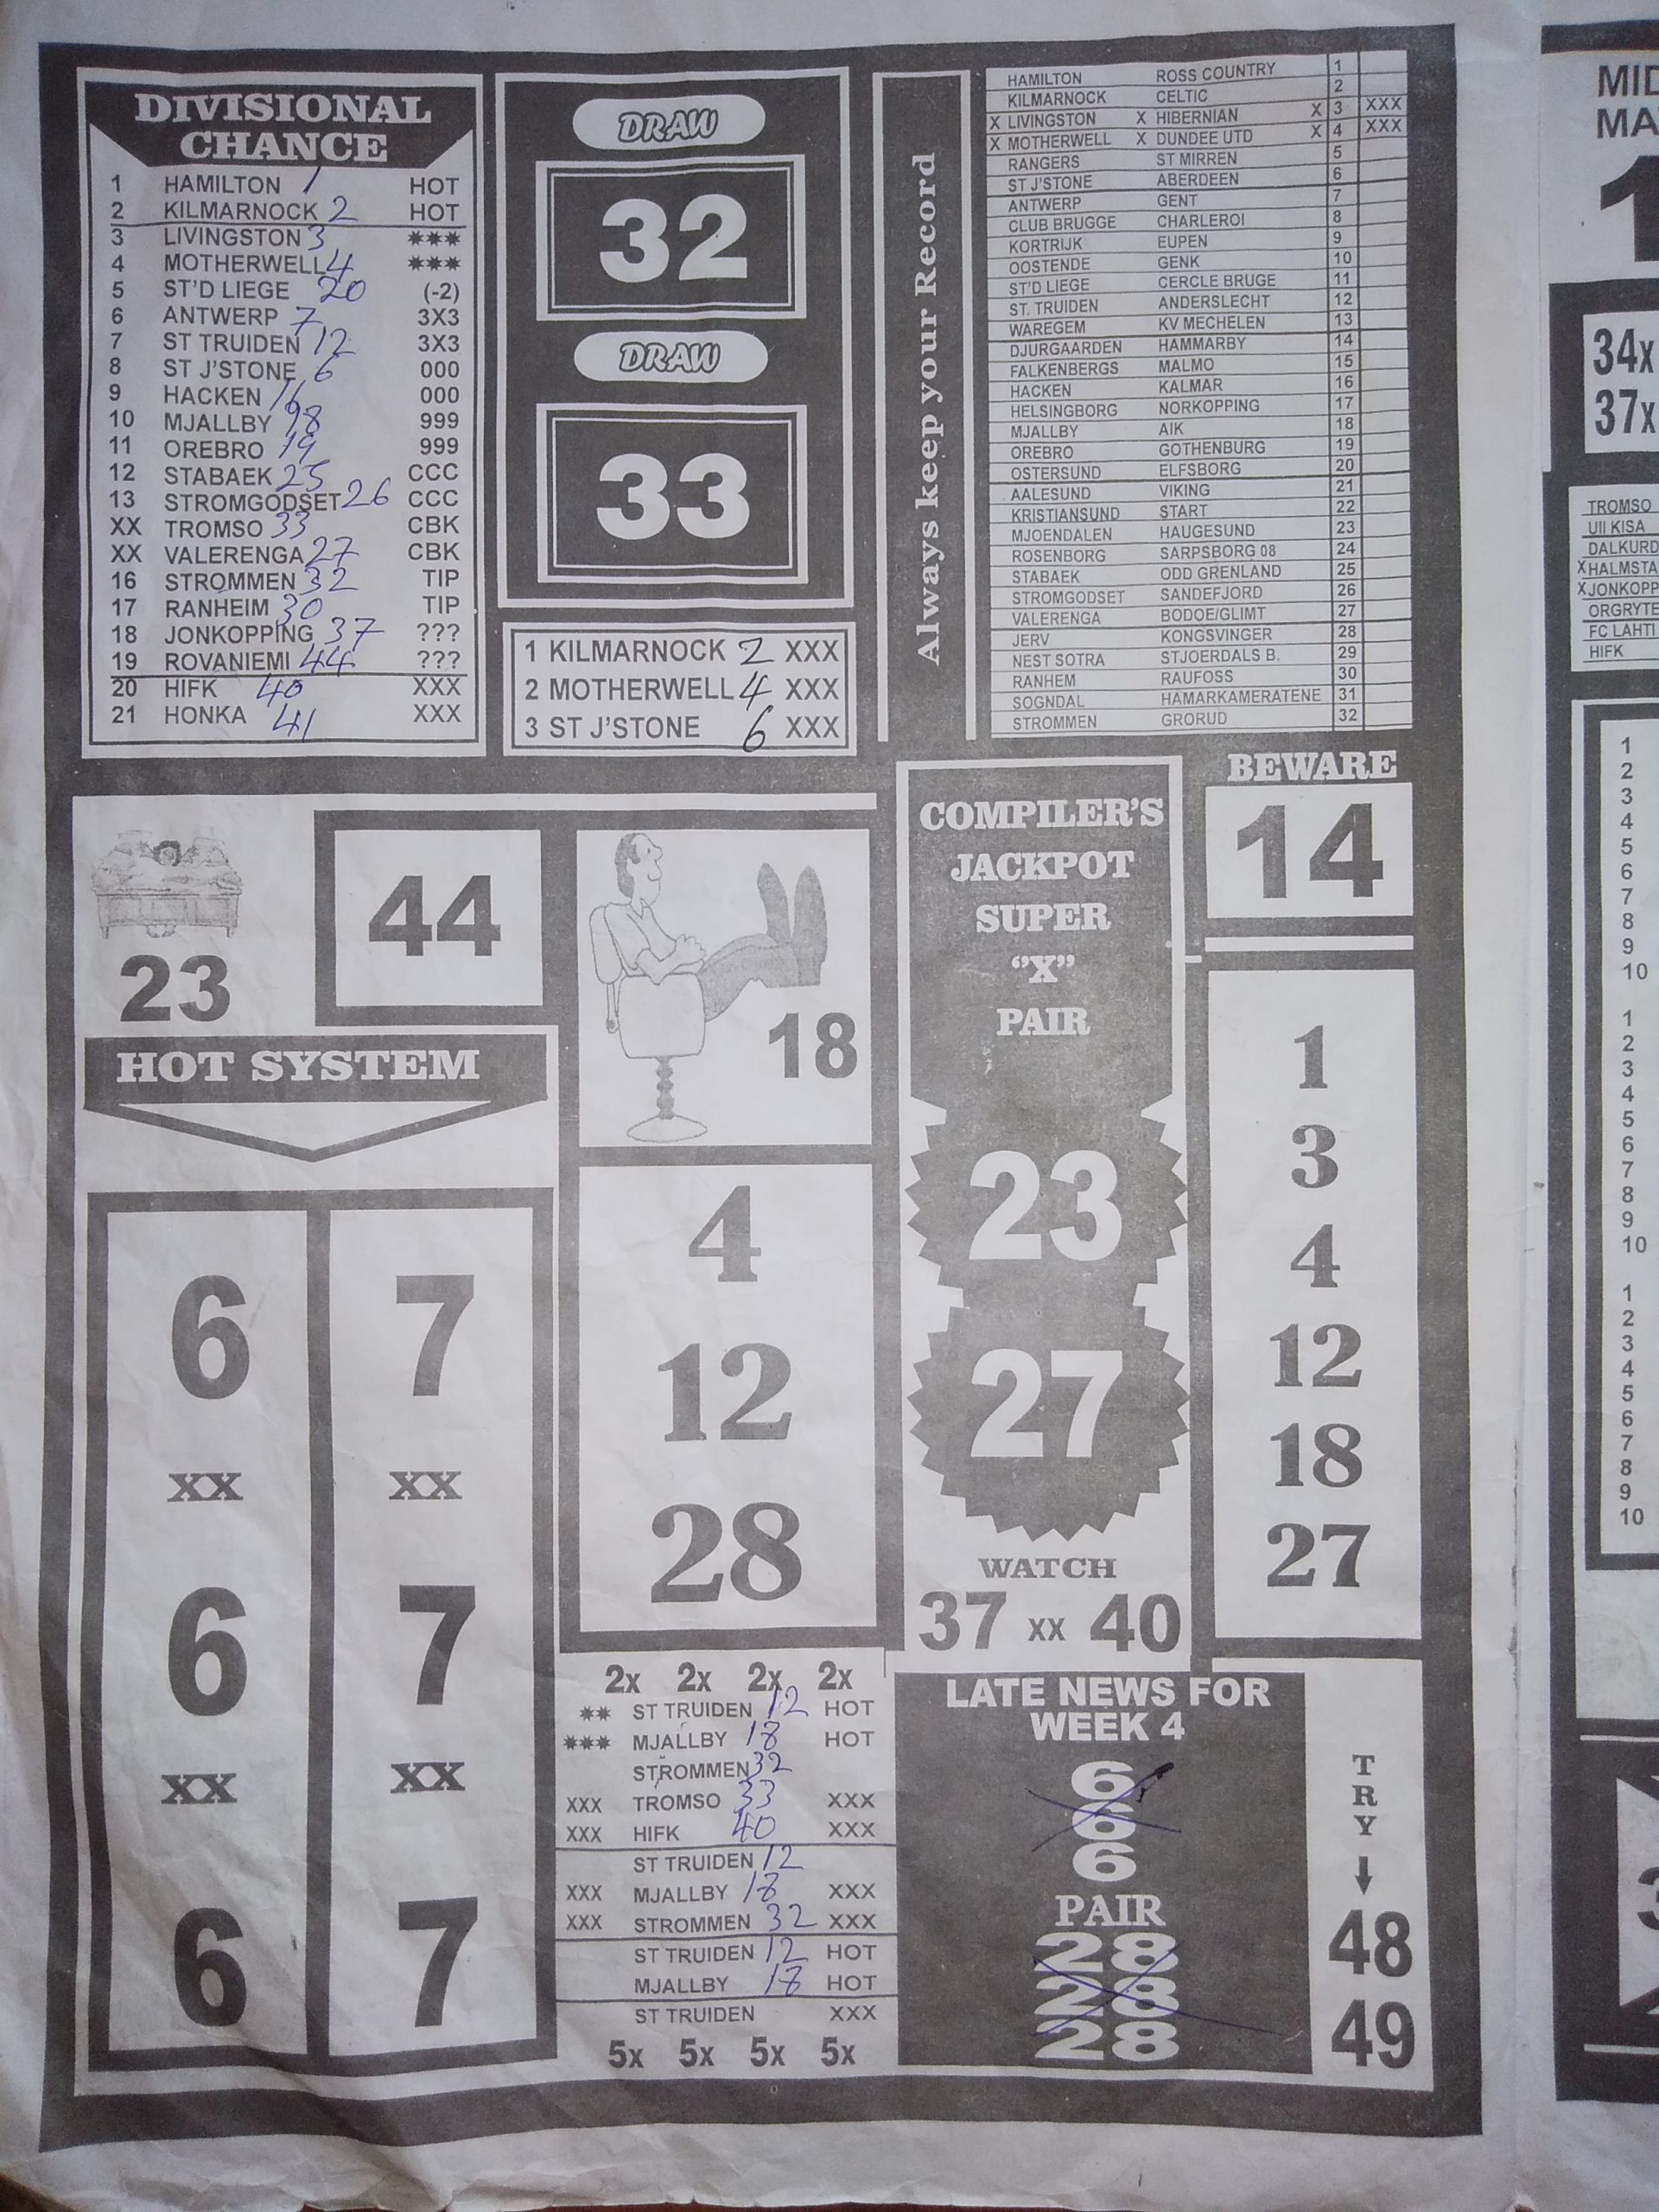 DIVISIONAL
CHANCE
1 HAMILTON 1 HOT
2 KILMARNOCK 2 HOT
3 LIVINGSTON 3 ***
4 MOTHERWELL 4 ***
5 ST'D LIEGE 20 (-2)
6 ANTWERP 7 3X3
7 ST TRUIDEN 12 3X3
8 ST J'STONE 6 000
9 HACKEN 16 000
10 MJALLBY 98 999
11 OREBRO 19 999
12 STABAEK 25 CCC
13 STROMGODSET 26 CCC
XX TROMSO 33 CBK
XX VALERENGA 27 CBK
16 STROMMEN 32 TIP
17 RANHEIM 30 TIP
18 JONKOPPING 37 ???
19 ROVANIEMI 44 ???
20 HIFK 40 XXX
21 HONKA 41 XXX
DRAW
32
DRAW
33
1 KILMARNOCK 2 XXX
2 MOTHERWELL 4 XXX
3 ST J'STONE 6 XXX
Always keep your Record
HAMILTON ROSS COUNTRY 1
KILMARNOCK CELTIC 2
X LIVINGSTON X HIBERNIAN X 3 XXX
X MOTHERWELL X DUNDEE UTD X 4 XXX
RANGERS ST MIRREN 5
ST J'STONE ABERDEEN 6
ANTWERP GENT 7
CLUB BRUGGE CHARLEROI 8
KORTRIJK EUPEN 9
OOSTENDE GENK 10
ST'D LIEGE CERCLE BRUGE 11
ST. TRUIDEN ANDERSLECHT 12
WAREGEM KV MECHELEN 13
DJURGAARDEN HAMMARBY 14
FALKENBERGS MALMO 15
HACKEN KALMAR 16
HELSINGBORG NORKOPPING 17
MJALLBY AIK 18
OREBRO GOTHENBURG 19
OSTERSUND ELFSBORG 20
AALESUND VIKING 21
KRISTIANSUND START 22
MJOENDALEN HAUGESUND 23
ROSENBORG SARPSBORG 08 24
STABAEK ODD GRENLAND 25
STROMGODSET SANDEFJORD 26
VALERENGA BODOE/GLIMT 27
JERV KONGSVINGER 28
NEST SOTRA STJOERDALS B. 29
RANHEM RAUFOSS 30
SOGNDAL HAMARKAMERATENE 31
STROMMEN GRORUD 32
23
44
18
HOT SYSTEM
6 7
XX XX
6 7
XX XX
6 7
4
12
28
COMPILER'S
JACKPOT
SUPER
"X"
PAIR
23
27
WATCH
37 XX 40
BEWARE
14
1
3
4
12
18
27
2x 2x 2x 2x
** ST TRUIDEN 12 HOT
*** MJALLBY 18 HOT
STROMMEN 32
XXX TROMSO 33 XXX
XXX HIFK 40 XXX
ST TRUIDEN 12
XXX MJALLBY 18 XXX
XXX STROMMEN 32 XXX
ST TRUIDEN 12 HOT
MJALLBY 18 HOT
ST TRUIDEN XXX
5x 5x 5x 5x
LATE NEWS FOR
WEEK 4
6
6
6
PAIR
28
28
28
TRY
48
49
34x
37x
TROMSO
UII KISA
DALKURD
X HALMSTA
X JONKOPP
ORGRYTE
FC LAHTI
HIFK
1
2
3
4
5
6
7
8
9
10
1
2
3
4
5
6
7
8
9
10
1
2
3
4
5
6
7
8
9
10